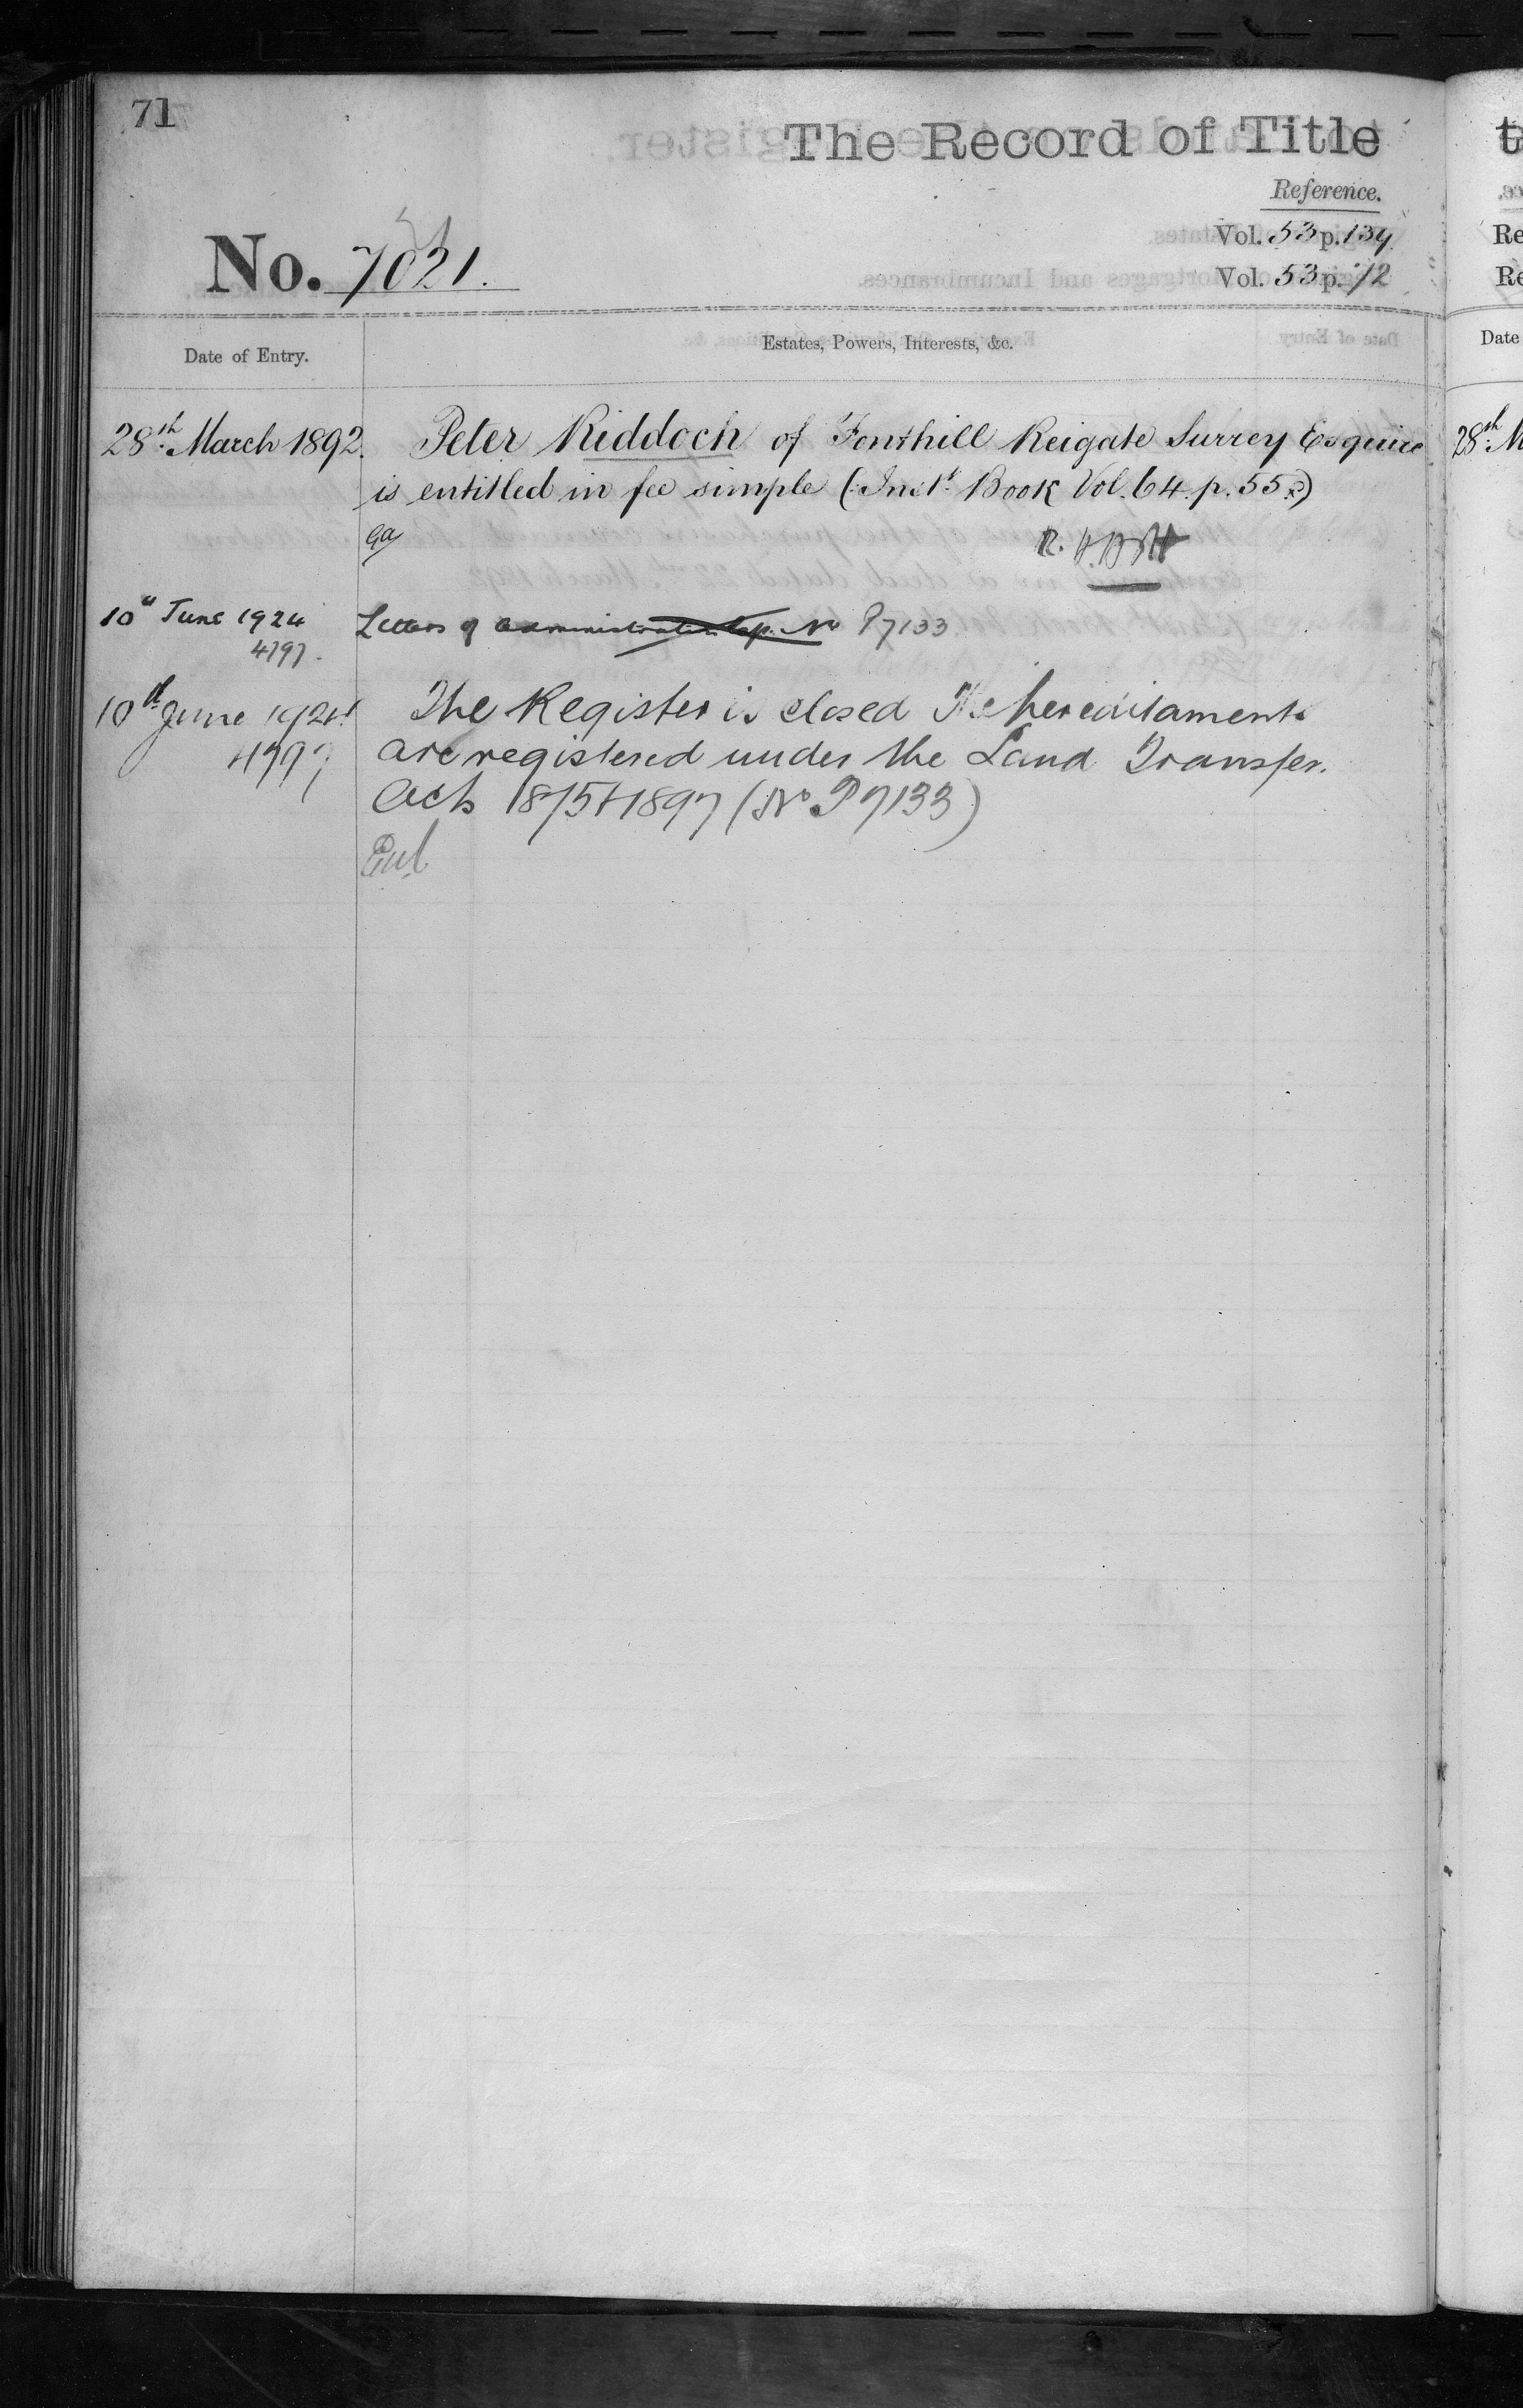 71
The Record of Title
Reference.
Vol. 53 p. 134
No. 7021.
Vol. 53 p. 72
Date of Entry.
Estates, Powers, Interests, &c.
28th March 1892. Peter Kiddoch of Fonthill Reigate Surrey Esquire
is entitled in fee simple (Inst. Book Vol. 64. p. 55.)
10th June 1924 Letters of administration No P7133
4797.
10th June 1924 The Register is closed The hereditaments
4797 are registered under the Land Transfer
Acts 1875 & 1897 (No P7133)
Re
Re
Date
28th M